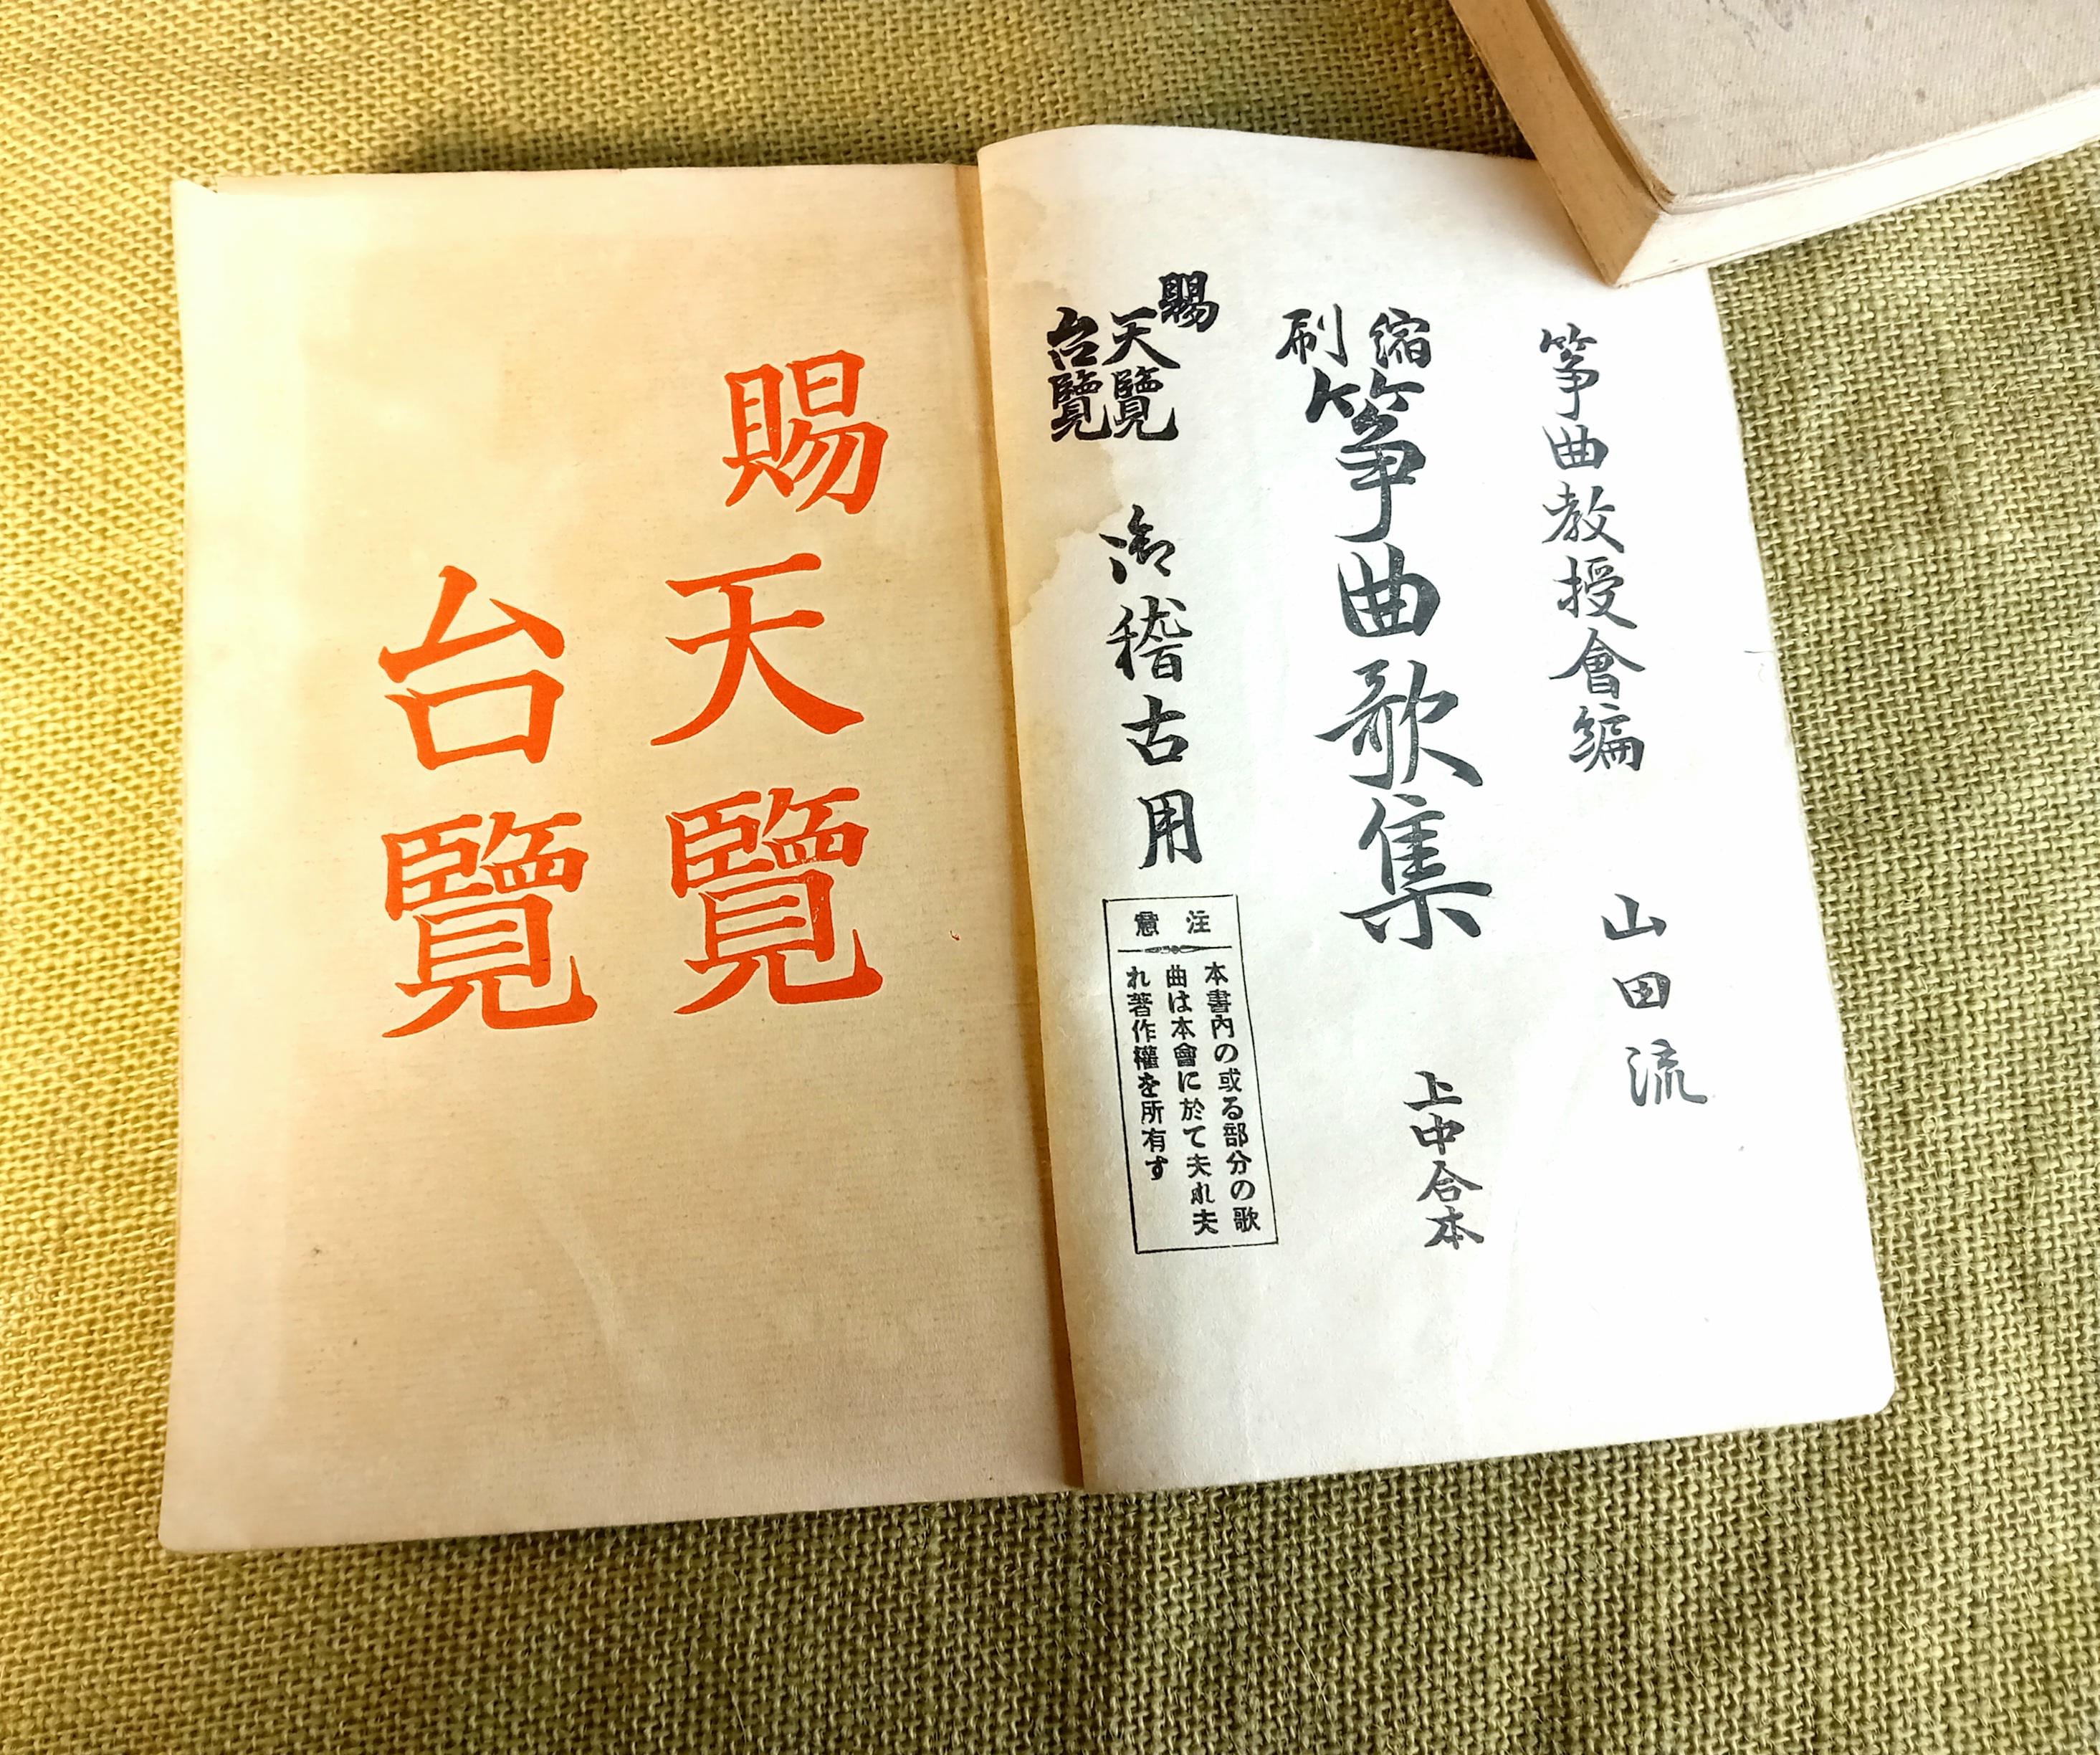 箏曲教授會編 山田流
縮刷
箏曲歌集 上中合本
賜
天覽
台覽
御稽古用
注意
本書內の或る部分の歌
曲は本會に於て夫れ夫
れ著作權を所有す
賜
天覽
台覽